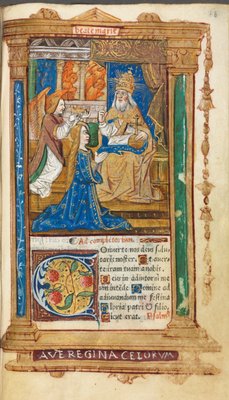 beatemarie
Ad completorium.
Onuerte nos deus salu
taris noster. Et auerte
iram tuam a nobis
Eus in adiutoriū me
um intēde Domine
adiuuandum me festina
Gloria patri & filio.
Sicut erat. Psalm⁹
AVE REGINA CELORVM